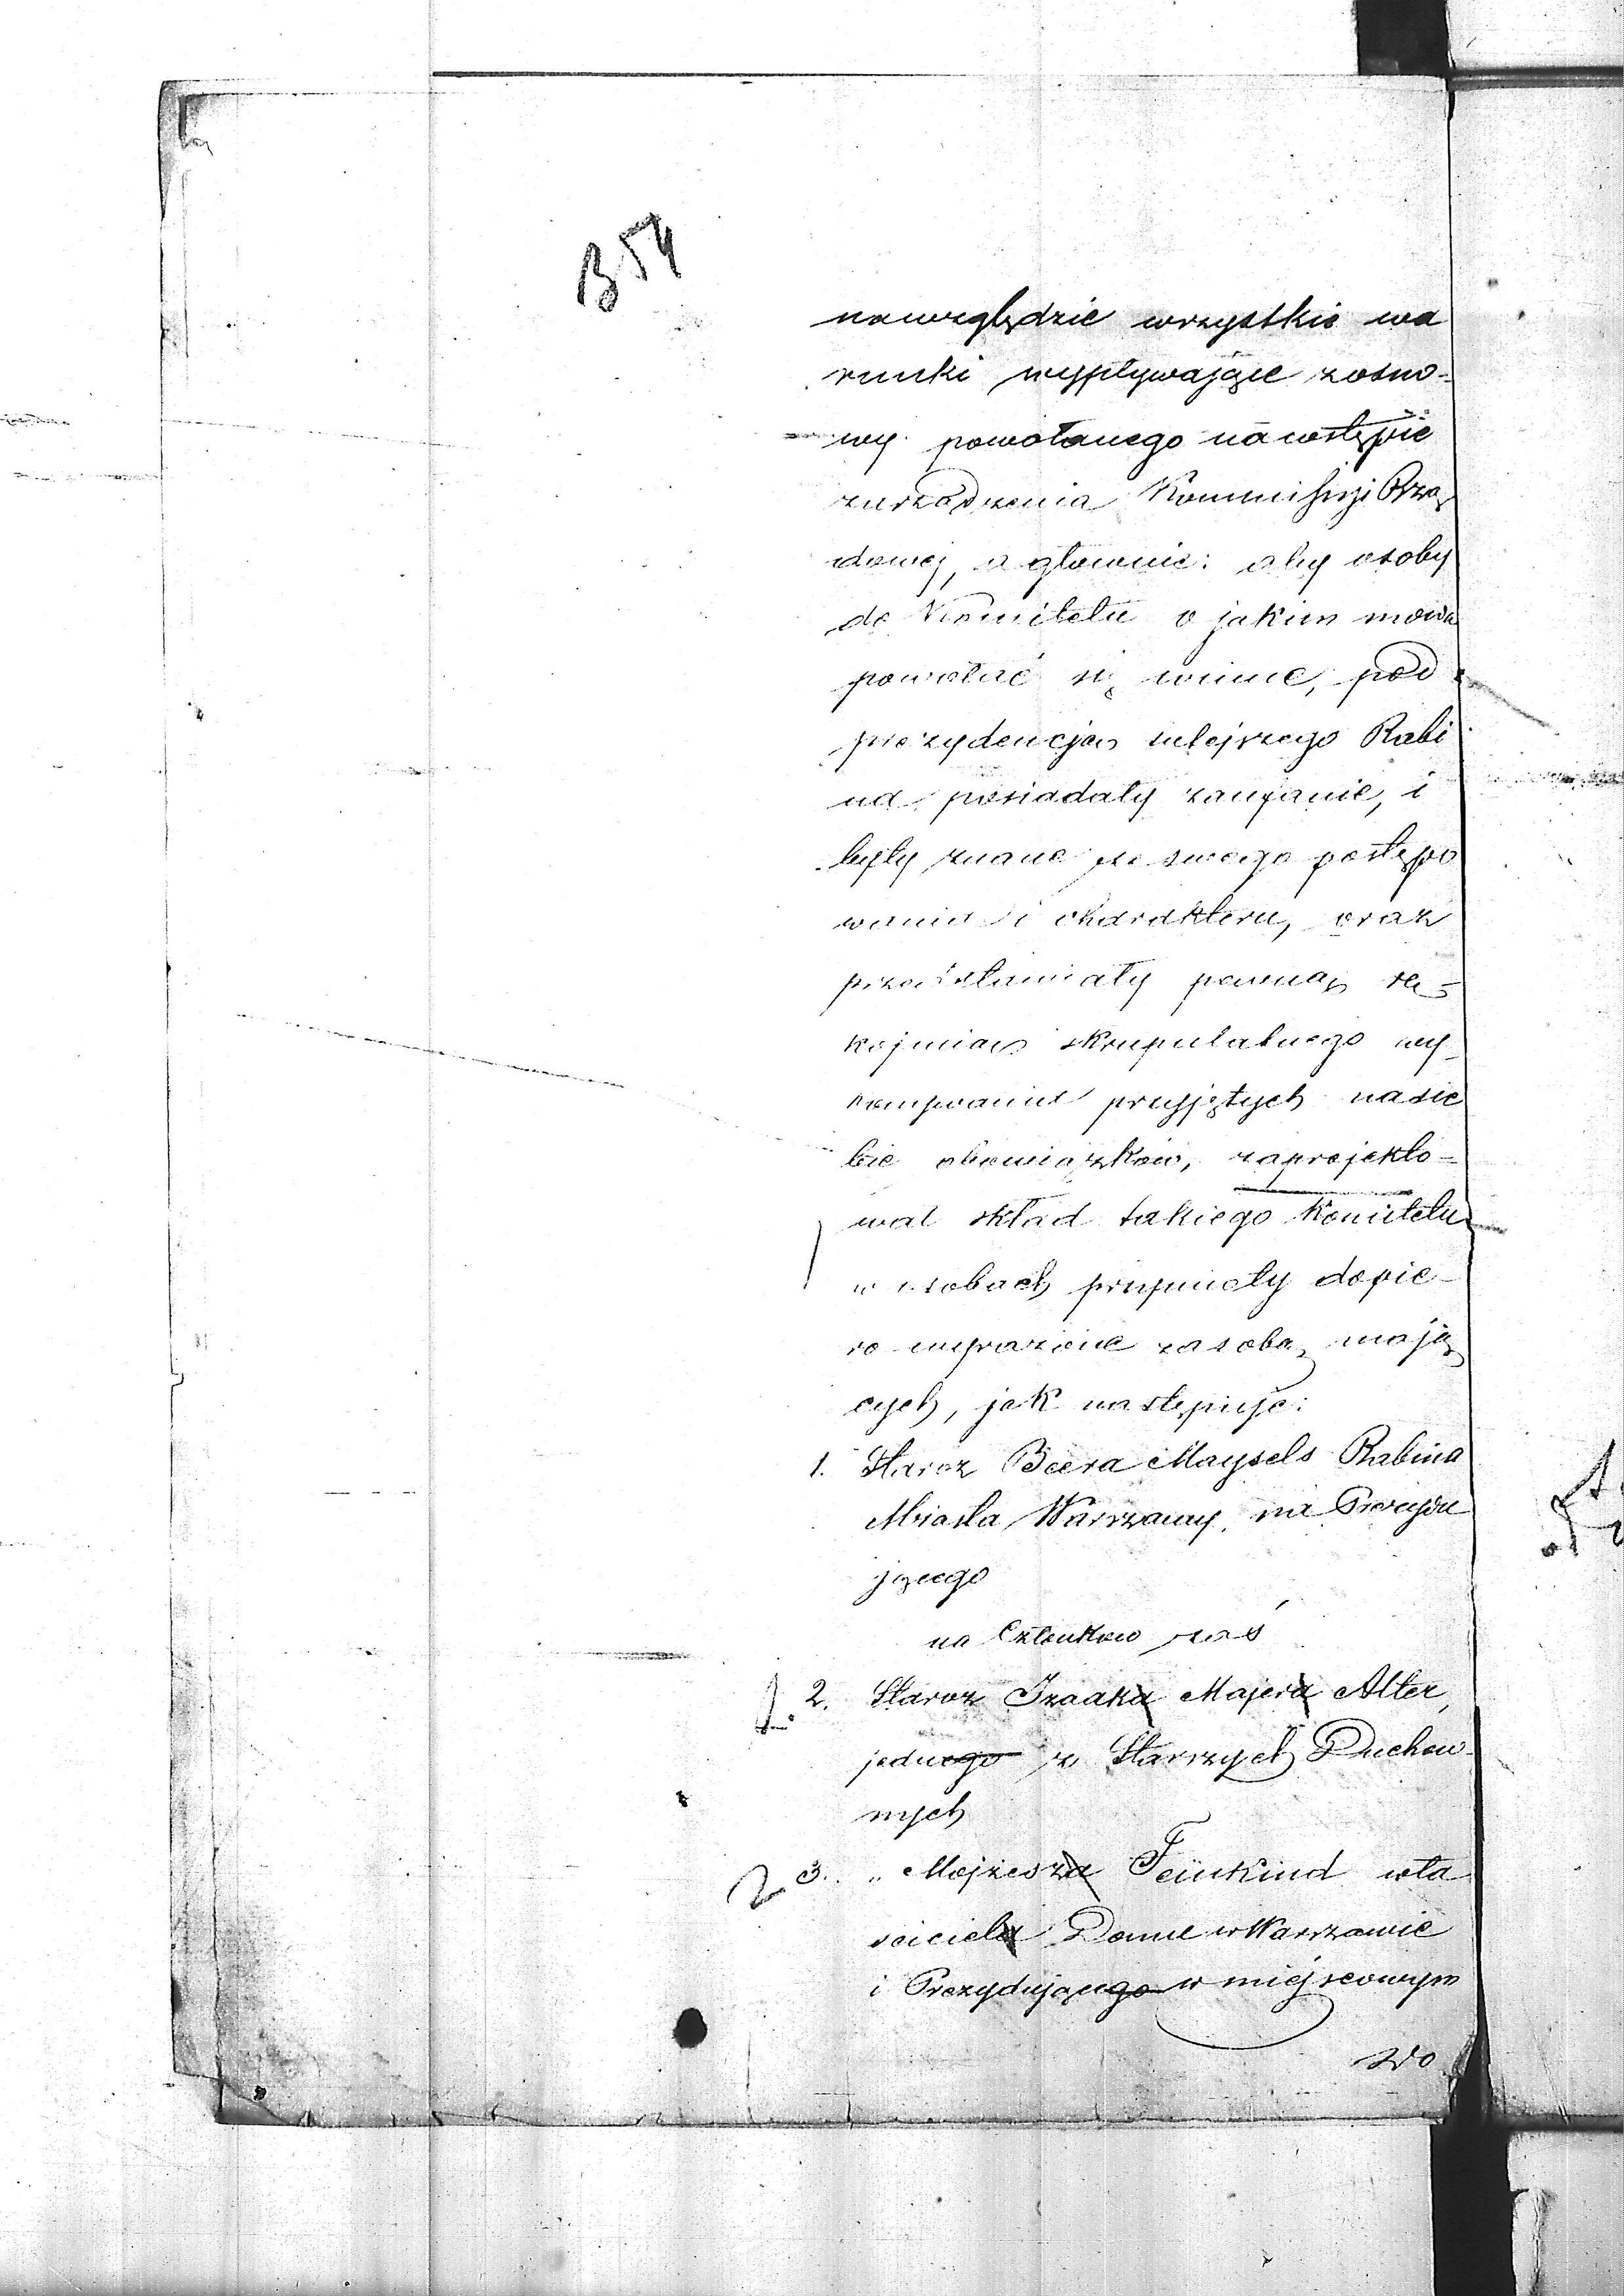 B54
nawzględzie wszystkie wa
runki wypływające zosno-
wy powołanego na wstępie
zurządzenia Kommissyi Rzą
dowej, a głownie: aby osoby
do Komitetu o jakim mowa
powołać się winne, pod
prezydencją tutejszego Rabi
na posiadały zaufanie, i
były znane ze swego postępo
wania i charakteru, oraz
przedstawiały pewną rę=
kojmią skrupulatnego wy-
konywania przyjętych nasie
bie obowiązków, zaprojekto=
wał skład takiego Komitetu
w osobach przymioty dopie-
ro wyrażone za sobą mają
cych, jak następuje:
1. Staroz Beera Maysels Rabina
Miasta Warszawy, na Prezydu
jącego
na Członkow zaś
1. 2. Staroz Izaaka Majera Alter,
jednego z Starszych Duchow-
nych
2 3. „ Mojżesza Feinkind wła
sciciela Domu w Warszawie
i Prezydującego w miejscowym
Do